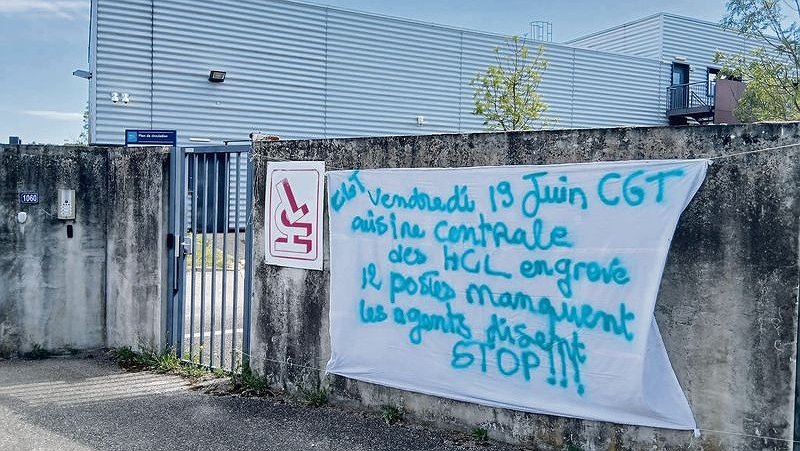 Plan de circulation
1060
CGT Vendredi 19 Juin CGT
cuisine centrale
des HCL en greve
12 postes manquent
les agents disent
STOP!!!